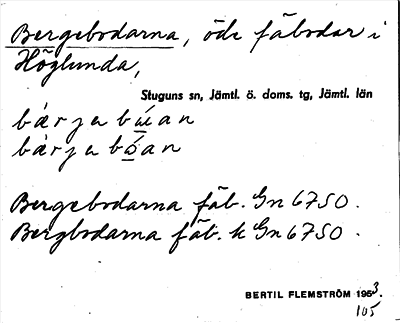 Bergebodarna, öde fäbodar i
Höglunda,
Stuguns sn, Jämtl. ö. doms. tg, Jämtl. län
bärje bùan
bärje bòan
Bergebodarna fäb. Gn 6750.
Bergbodarna fäb. k Gn 6750.
BERTIL FLEMSTRÖM 1953.
105